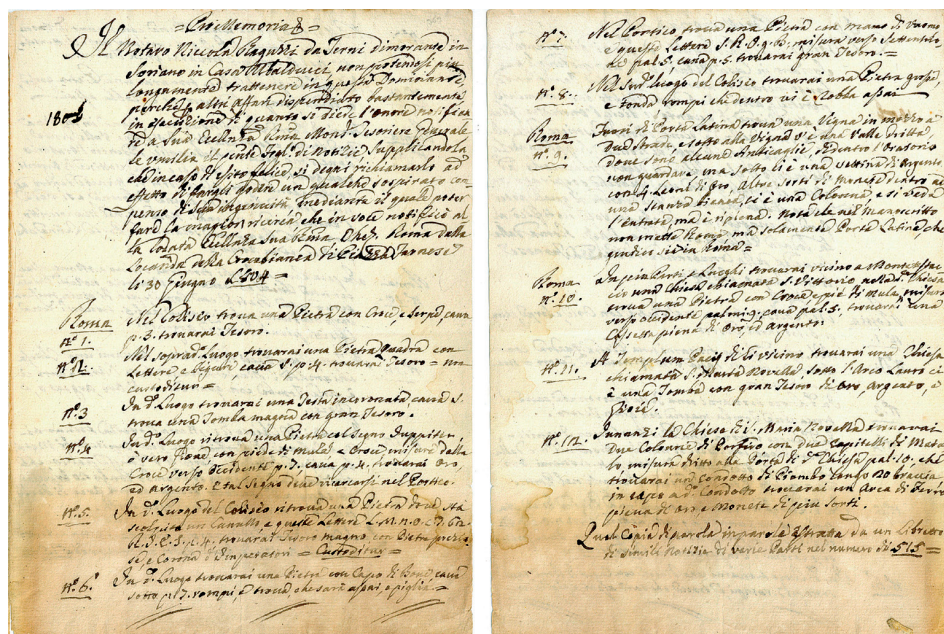 = Pro Memoria =
Il Notaro Niccola Raguzzi da Terni dimorante in
Soriano in Casa non potemosi più
longamente trattenere in questa Dominante
perchè altri affari
1804
in esecuzione di quanto si diede l'onore notifica
re a Sua Eccellenza Rma Monsr Tesoriere Generale
le umilia il pnte Fogl. di Notizie, Supplicandola
che in caso di esito felice, si degni richiamarlo ad
effetto di fargli godere un qualche sospirato com
penso di mediante il quale poter
fare la maggior ricerca che in voce notificò al
la lodata Eccellenza Sua Rma Che Roma dalla
Locanda della Crocebianca di Farnese
li 30 Giugno 1804 =
Roma
N.° 1.
Nel Coliseo trova una Pietra con Croce e Serpe, cava
p. 3. trovarai Tesoro.
N.° 2.
Nel soprad.° Luogo trovarai una Pietra quadra con
Lettere e Figure cava S. p. 4. trovarai Tesoro = non
custoditur =
N.° 3
In d.° Luogo trovarai una Testa incoronata cava S.
trova una Tomba magna con gran Tesoro.
N.° 4
In d.° Luogo ritrova una Pietra col Segno Juppiter
o vero con piede di mula, e Croce, misura dalla
Croce verso Occidente p. 7. cava p. 4. trovarai Oro,
ed argento. E tal Segno deve ricercarsi nel Portico.
N.° 5.
In d.° Luogo del Coliseo ritrova una Pietra dove sta
scolpito un Cavallo e queste Lettere L. M. N. O.
p. 4. trovarai Tesoro magno con Pietre prezio
se, e Corona d'Imperatori = Custoditur =
N.° 6.
In d.° Luogo trovarai una Pietra con Capo di Bove cava
sotto p. 7. rompi, e trova, che sarà assai, e piglia =
N.° 7.
Nel Portico trova una Pietra con mano di Uomo
e queste Lettere S. R. O. q. D., misura verso Settentrio
ne pal. 5. cava p. 5. trovarai gran Tesoro. =
N.° 8.
Nel Sud.° luogo del Coliseo trovarai una Pietra grossa
e tonda rompi che dentro vi è robba assai
Roma
N.° 9.
Fuori di Porta Latina trova una Vigna in mezzo a
due strade, e sotto alla Vigna v'è una Valle dritta,
dove sono alcune Anticaglie, dentro l'Oratorio
non guardare, ma sotto li è una Settina di Argento
con 4 Leoni di Oro, Altre Sorti di Monete dentro ad
una stanza bianca, vi è una Colonna, e si vede
l'entrata, ma è ripiena. Nota che nel Manoscritto
non mette Roma ma solamente Porta Latina, che
giudico sii in Roma =
Roma
N.° 10.
In più Parti, e Luoghi trovarai vicino a
una Chiesa chiamata S. Vittorio nella d.a Chiesa
cerca una Pietra con Croce, e piè di Mula, misura
verso occidente palmi 9. cava pal. 5. trovarai una
Cassetta piena di oro ed argento
N.° 11.
A Templum Pacis di li vicino trovarai una Chiesa
chiamata S. Maria Novella sotto l'Arco Lauro ci
è una Tomba con gran Tesoro di Oro, Argento, e
Gioie.
N.° 12.
Innanzi la Chiesa di S. Maria Novella trovarai
due Colonne di Porfiro con due Capitelli di Metal
lo, misura dritto alla Porta di d.a Chiesa pal. 10. che
trovarai un Condotto di Piombo longo 20 braccia
in capo al Condotto trovarai un Arca di Ferro
piena di Oro e Monete di più Sorti.
Qual Copia di parola in parola estratta da un Libretto
di Simili Notizie di varie Parti nel numero di 515 =